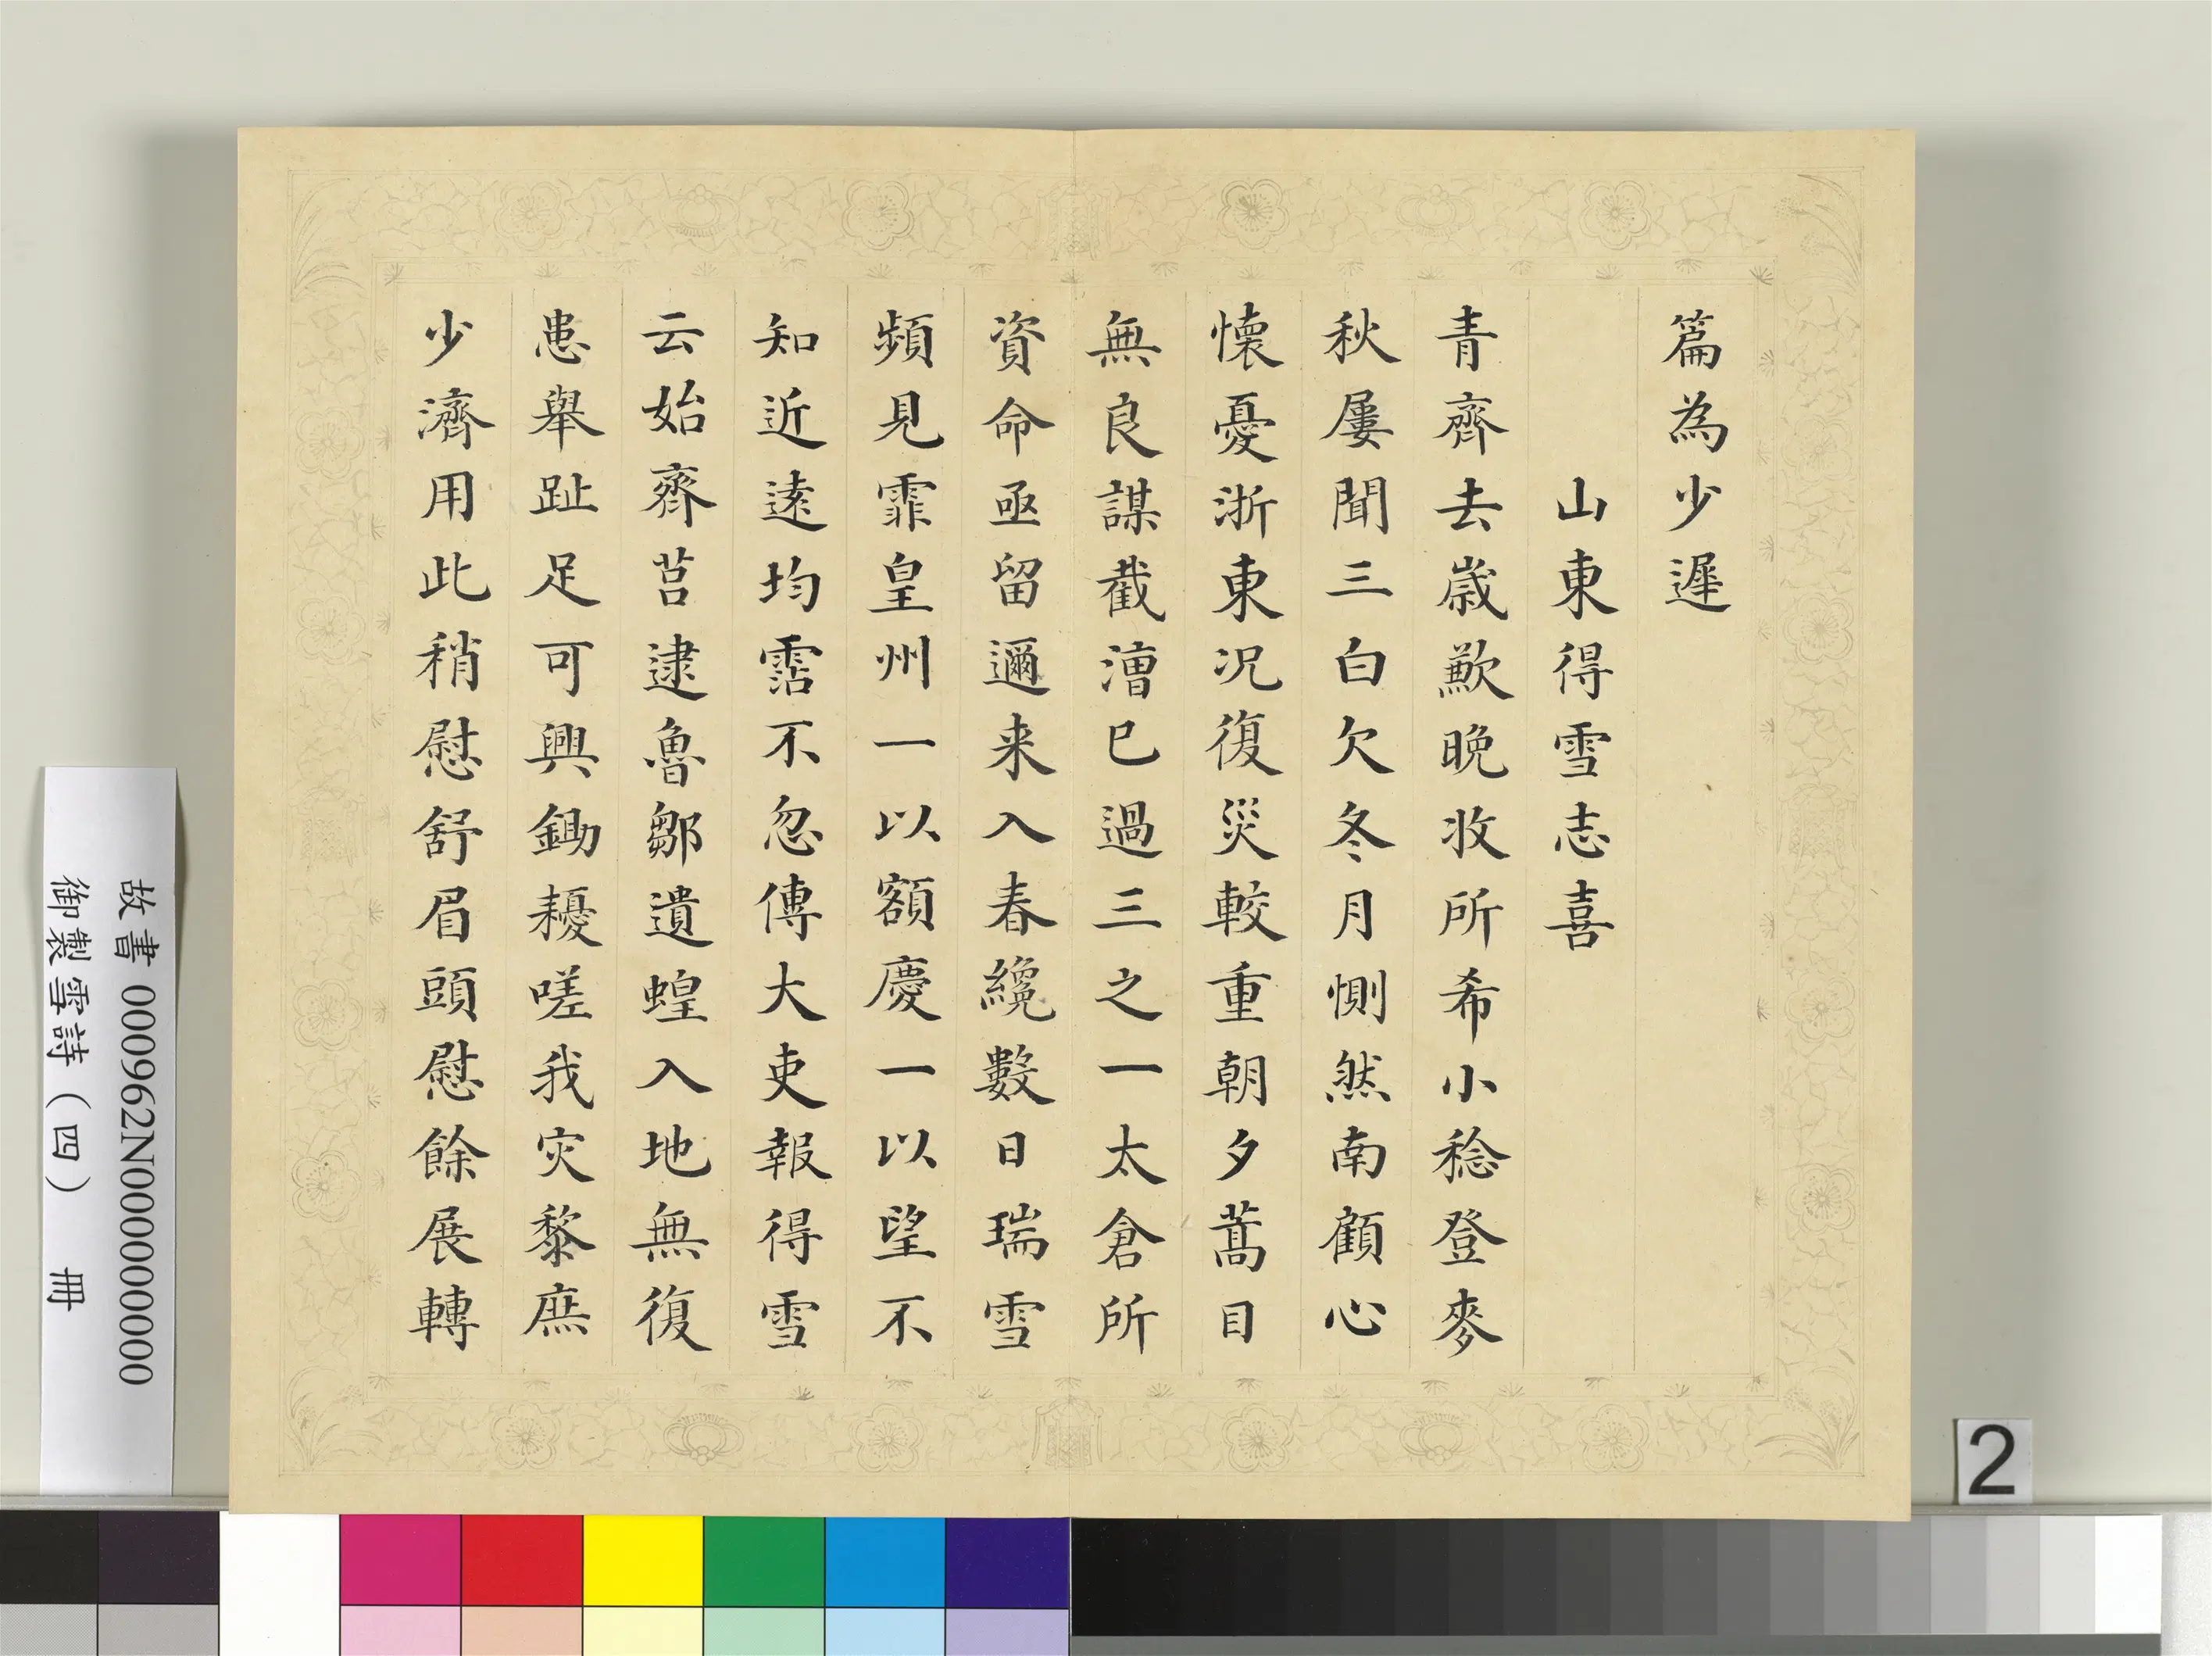 篇為少遲
山東得雪志喜
青齊去歲歉晚收所希小稔登麥
秋屢聞三白欠冬月惻然南顧心
懷憂浙東況復災較重朝夕蒿目
無良謀截漕已過三之一太倉所
資命亟留邇来入春纔數日瑞雪
頻見霏皇州一以額慶一以望不
知近遠均霑不忽傳大吏報得雪
云始齊莒逮魯鄒遺蝗入地無復
患舉趾足可興鋤耰嗟我灾黎庶
少濟用此稍慰舒眉頭慰餘展轉
故書 000962N000000000
御製雪詩(四) 冊
2